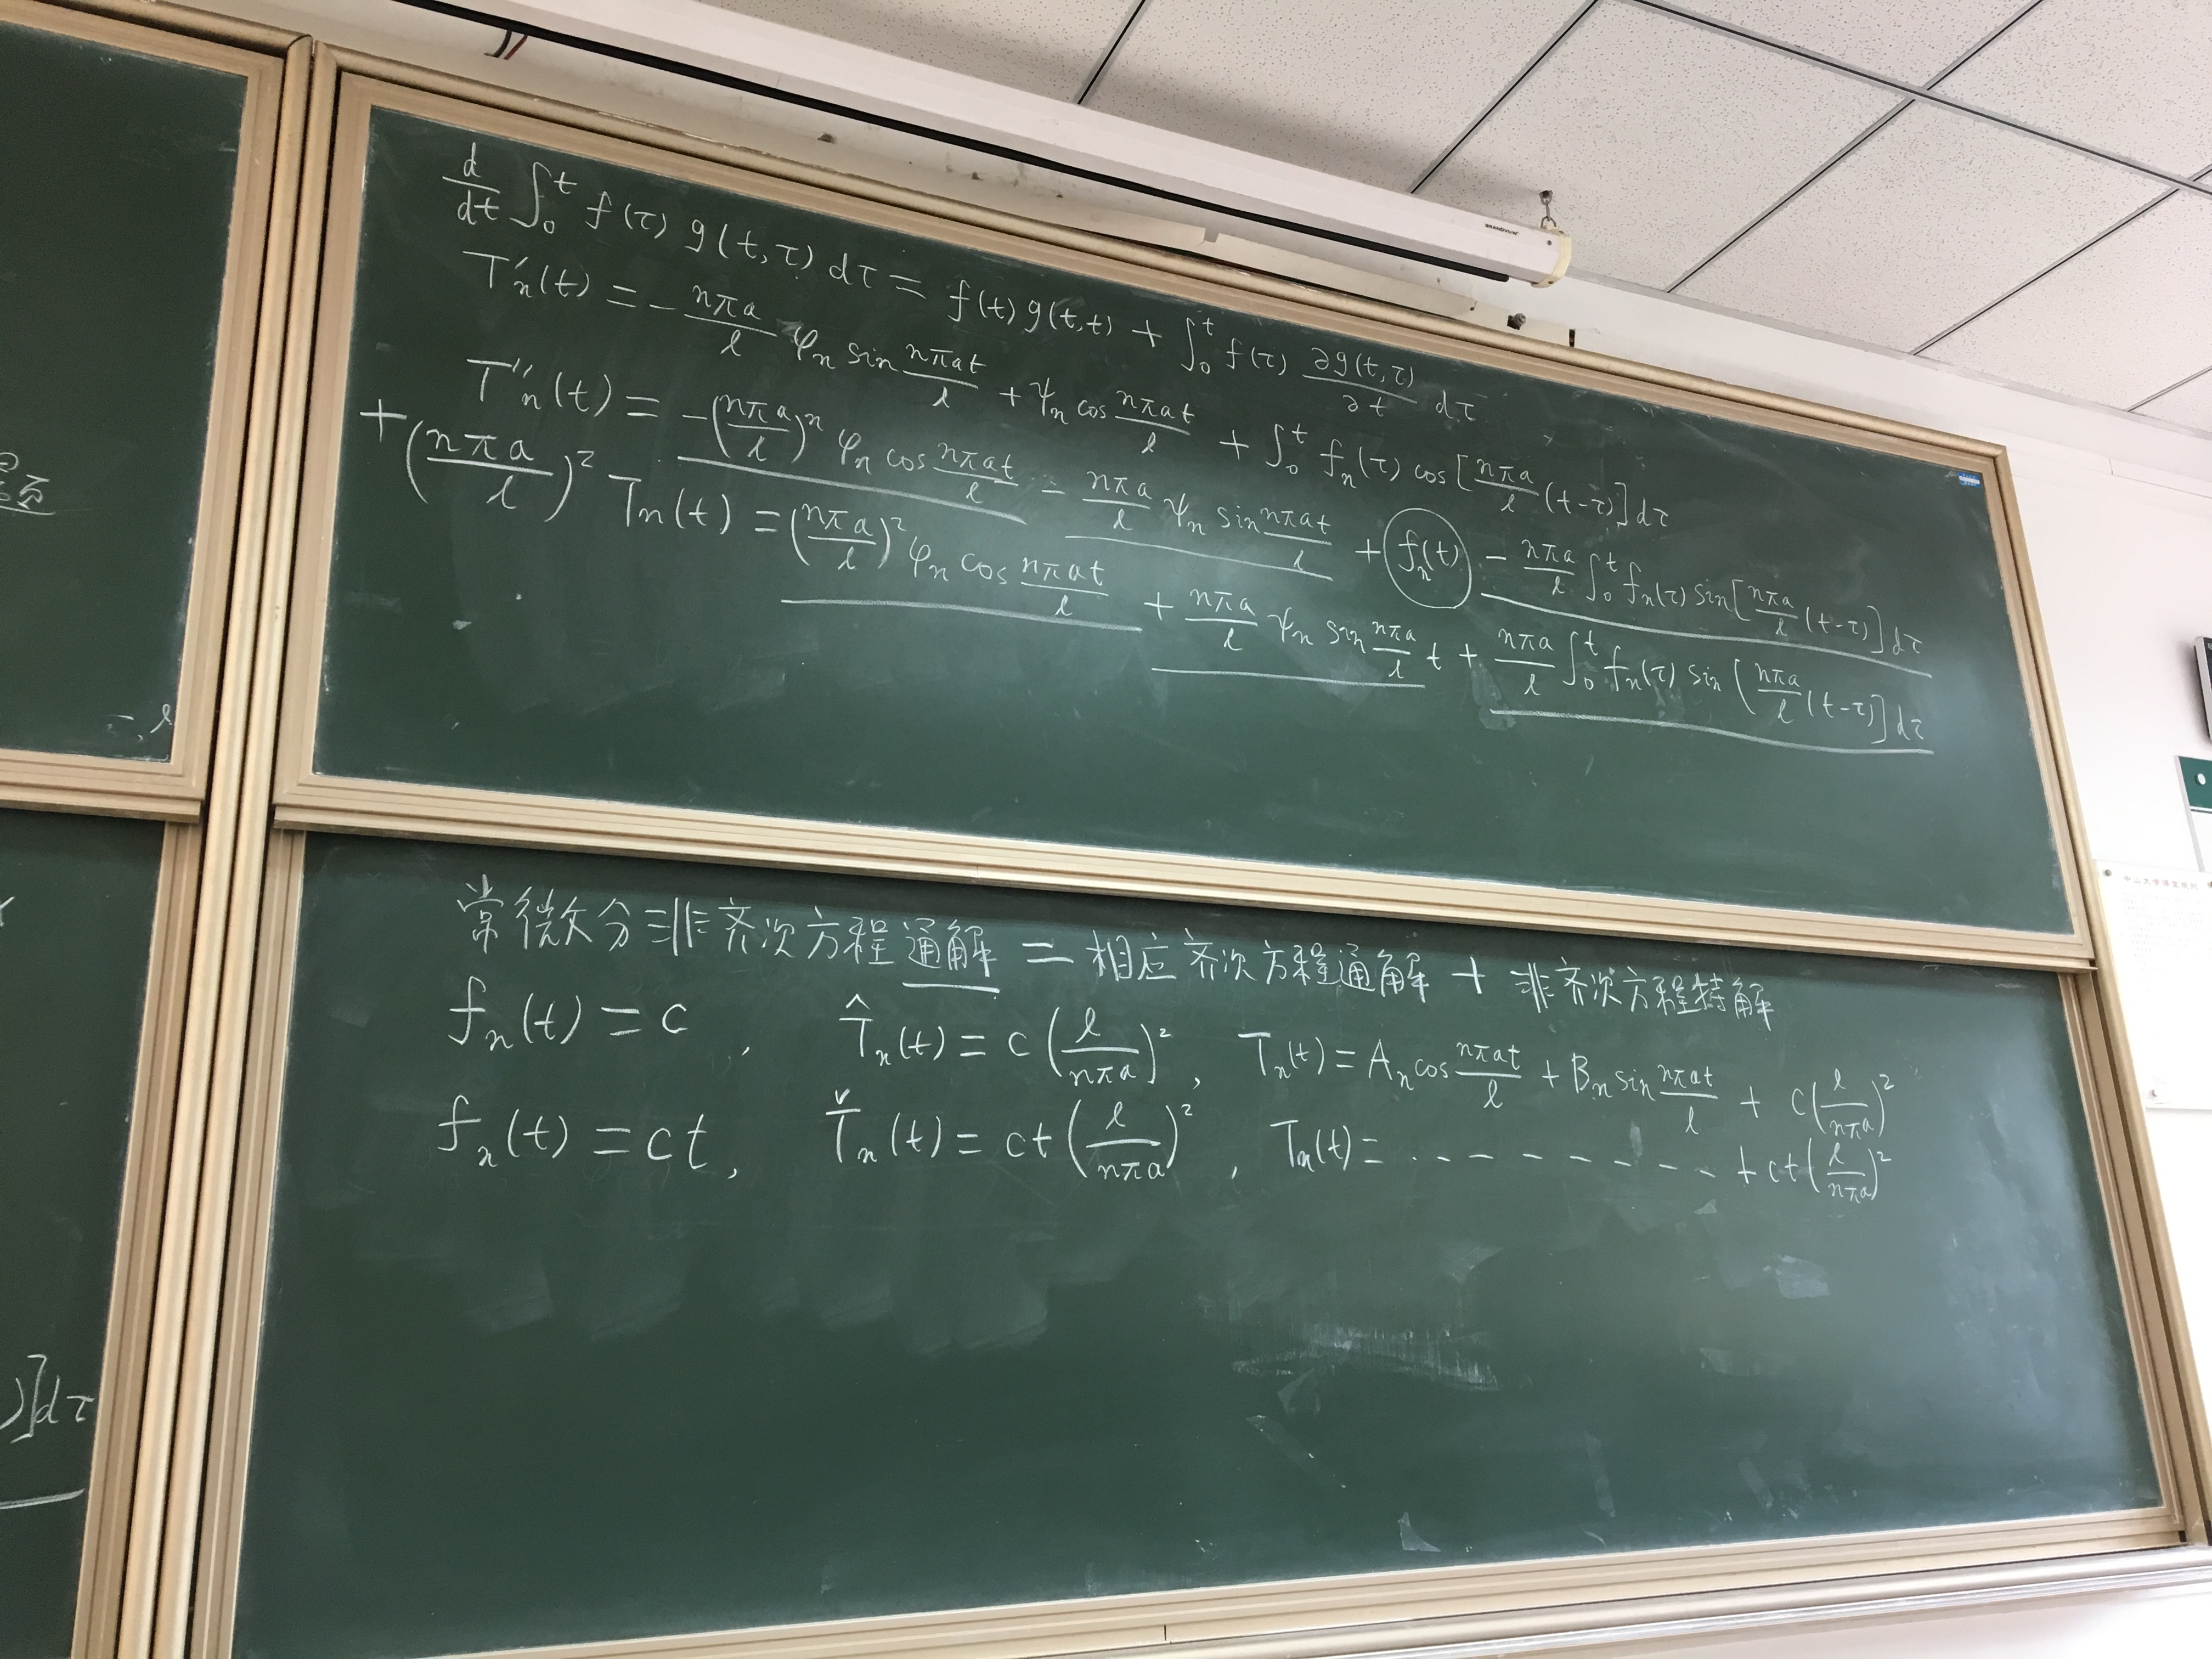 d/dt ∫₀ᵗ f(τ) g(t,τ) dτ = f(t) g(t,t) + ∫₀ᵗ f(τ) ∂g(t,τ)/∂t dτ
T′ₙ(t) = − nπa/l φₙ sin nπat/l + ψₙ cos nπat/l + ∫₀ᵗ fₙ(τ) cos[nπa/l (t-τ)] dτ
T″ₙ(t) = −(nπa/l)ⁿ φₙ cos nπat/l − nπa/l ψₙ sin nπat/l + fₙ(t) − nπa/l ∫₀ᵗ fₙ(τ) sin[nπa/l (t-τ)] dτ
+ (nπa/l)² Tₙ(t) = (nπa/l)² φₙ cos nπat/l + nπa/l ψₙ sin nπa/l t + nπa/l ∫₀ᵗ fₙ(τ) sin (nπa/l (t-τ)] dτ
常微分非齐次方程通解 = 相应齐次方程通解 + 非齐次方程特解
fₙ(t) = c , T̂ₙ(t) = c (l/nπa)² , Tₙ(t) = Aₙ cos nπat/l + Bₙ sin nπat/l + c(l/nπa)²
fₙ(t) = ct , Ťₙ(t) = ct (l/nπa)² , Tₙ(t) = - - - - - - - - - + ct(l/nπa)²
)]dτ